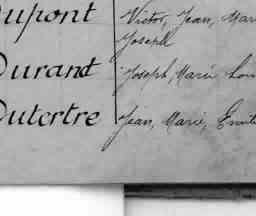 Dupont Victor, Jean, Mari
Joseph
Durand Joseph, Marie Lou
Dutertre Jean, Marie, Emil